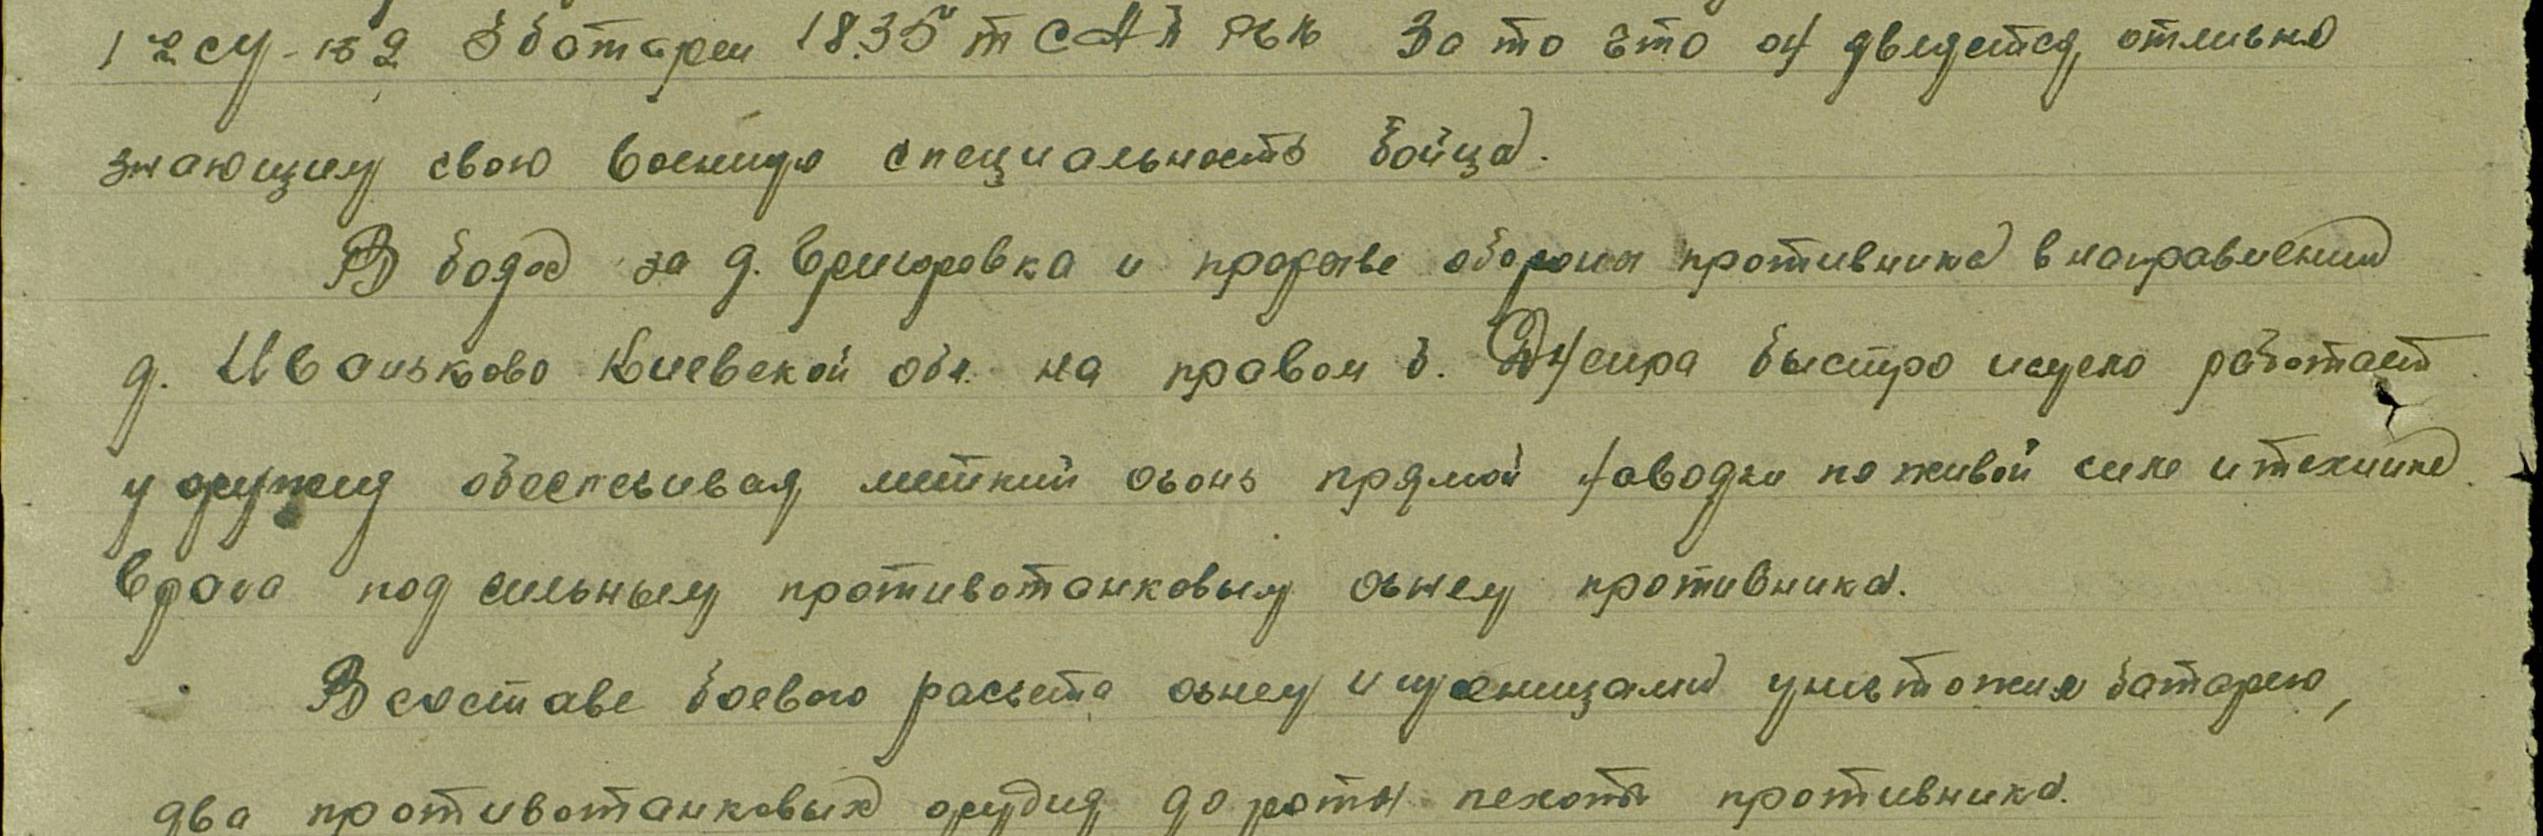 СУ-152 3 батареи 1835 тСАП РГК За то что он является отлично
знающим свою военную специальность бойца.
В боях за д. Григоровка и прорыве обороны противника в направлении
д. Иваньково Киевской обл. на правом б. Днепра быстро и умело работает
у орудия обеспечивая меткий огонь прямой наводки по живой силе и технике
врага под сильным противотанковым огнем противника.
В составе боевого расчета огнем и гусеницами уничтожил батарею,
два противотанковых орудия до роты пехоты противника.